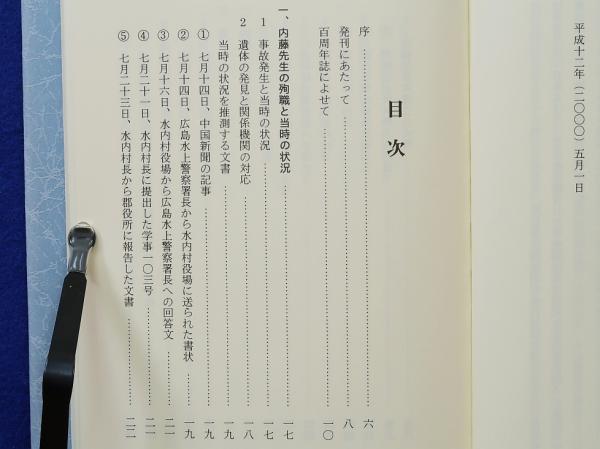 平成十二年(二〇〇〇)五月一日
目次
序 …… 六
発刊にあたって …… 八
百周年誌によせて …… 一〇
一、内藤先生の殉職と当時の状況 …… 一七
1 事故発生と当時の状況 …… 一七
2 遺体の発見と関係機関の対応 …… 一八
当時の状況を推測する文書 …… 一九
① 七月十四日、中国新聞の記事 …… 一九
② 七月十四日、広島水上警察署長から水内村役場に送られた書状 …… 一九
③ 七月十六日、水内村役場から広島水上警察署長への回答文 …… 二一
④ 七月二十一日、水内村長に提出した学事一〇三号 …… 二一
⑤ 七月二十三日、水内村長から郡役所に報告した文書 …… 二二